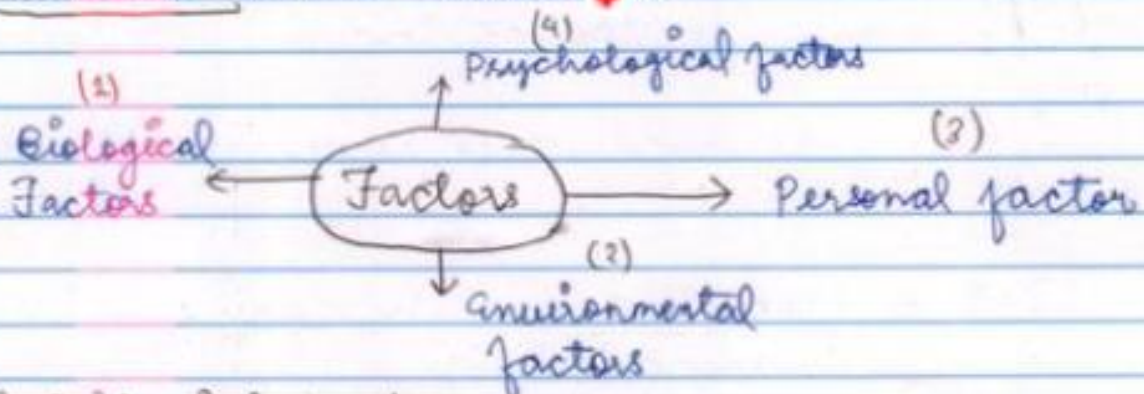 (4)
Psychological factors
(1)
Biological
Factors
Factors
(3)
Personal factor
(2)
Environmental
factors